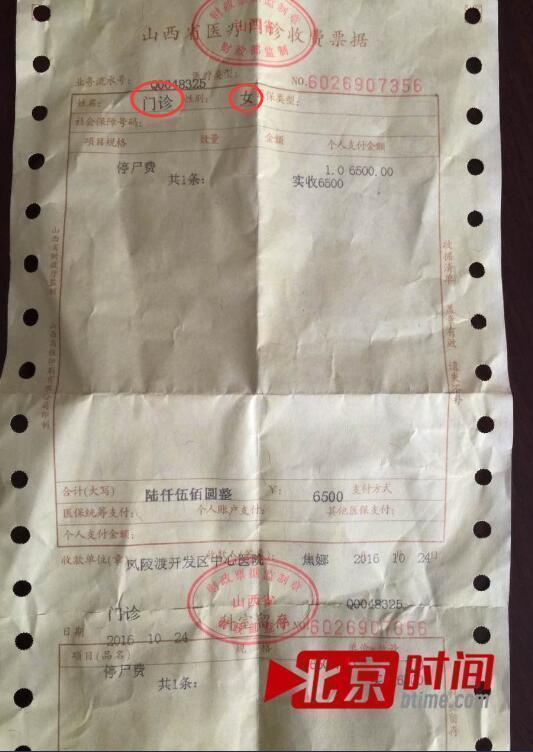 财政票据监制章
山西省
财政部监制
山西省医疗门诊收费票据
业务流水号: Q0048325 医疗类型: NO.6026907356
姓名: 门诊 性别: 女 保类型:
社会保障号码:
项目规格 数量 金额 个人支付金额
停尸费 1.0 6500.00
共1条: 实收6500
收据清单 盖章有效 遗失不补
合计(大写) 陆仟伍佰圆整 ¥: 6500 支付方式
医保统筹支付: 个人账户支付: 其他医保支付:
个人支付金额:
收款单位(章) 风陵渡开发区中心医院 焦娜 2016 10 24日
财政票据监制章
山西省
门诊 Q0048325
日期 2016 10 24 NO.6026907356
项目(品名) 规格
停尸费
共1条:
北京时间
btime.com